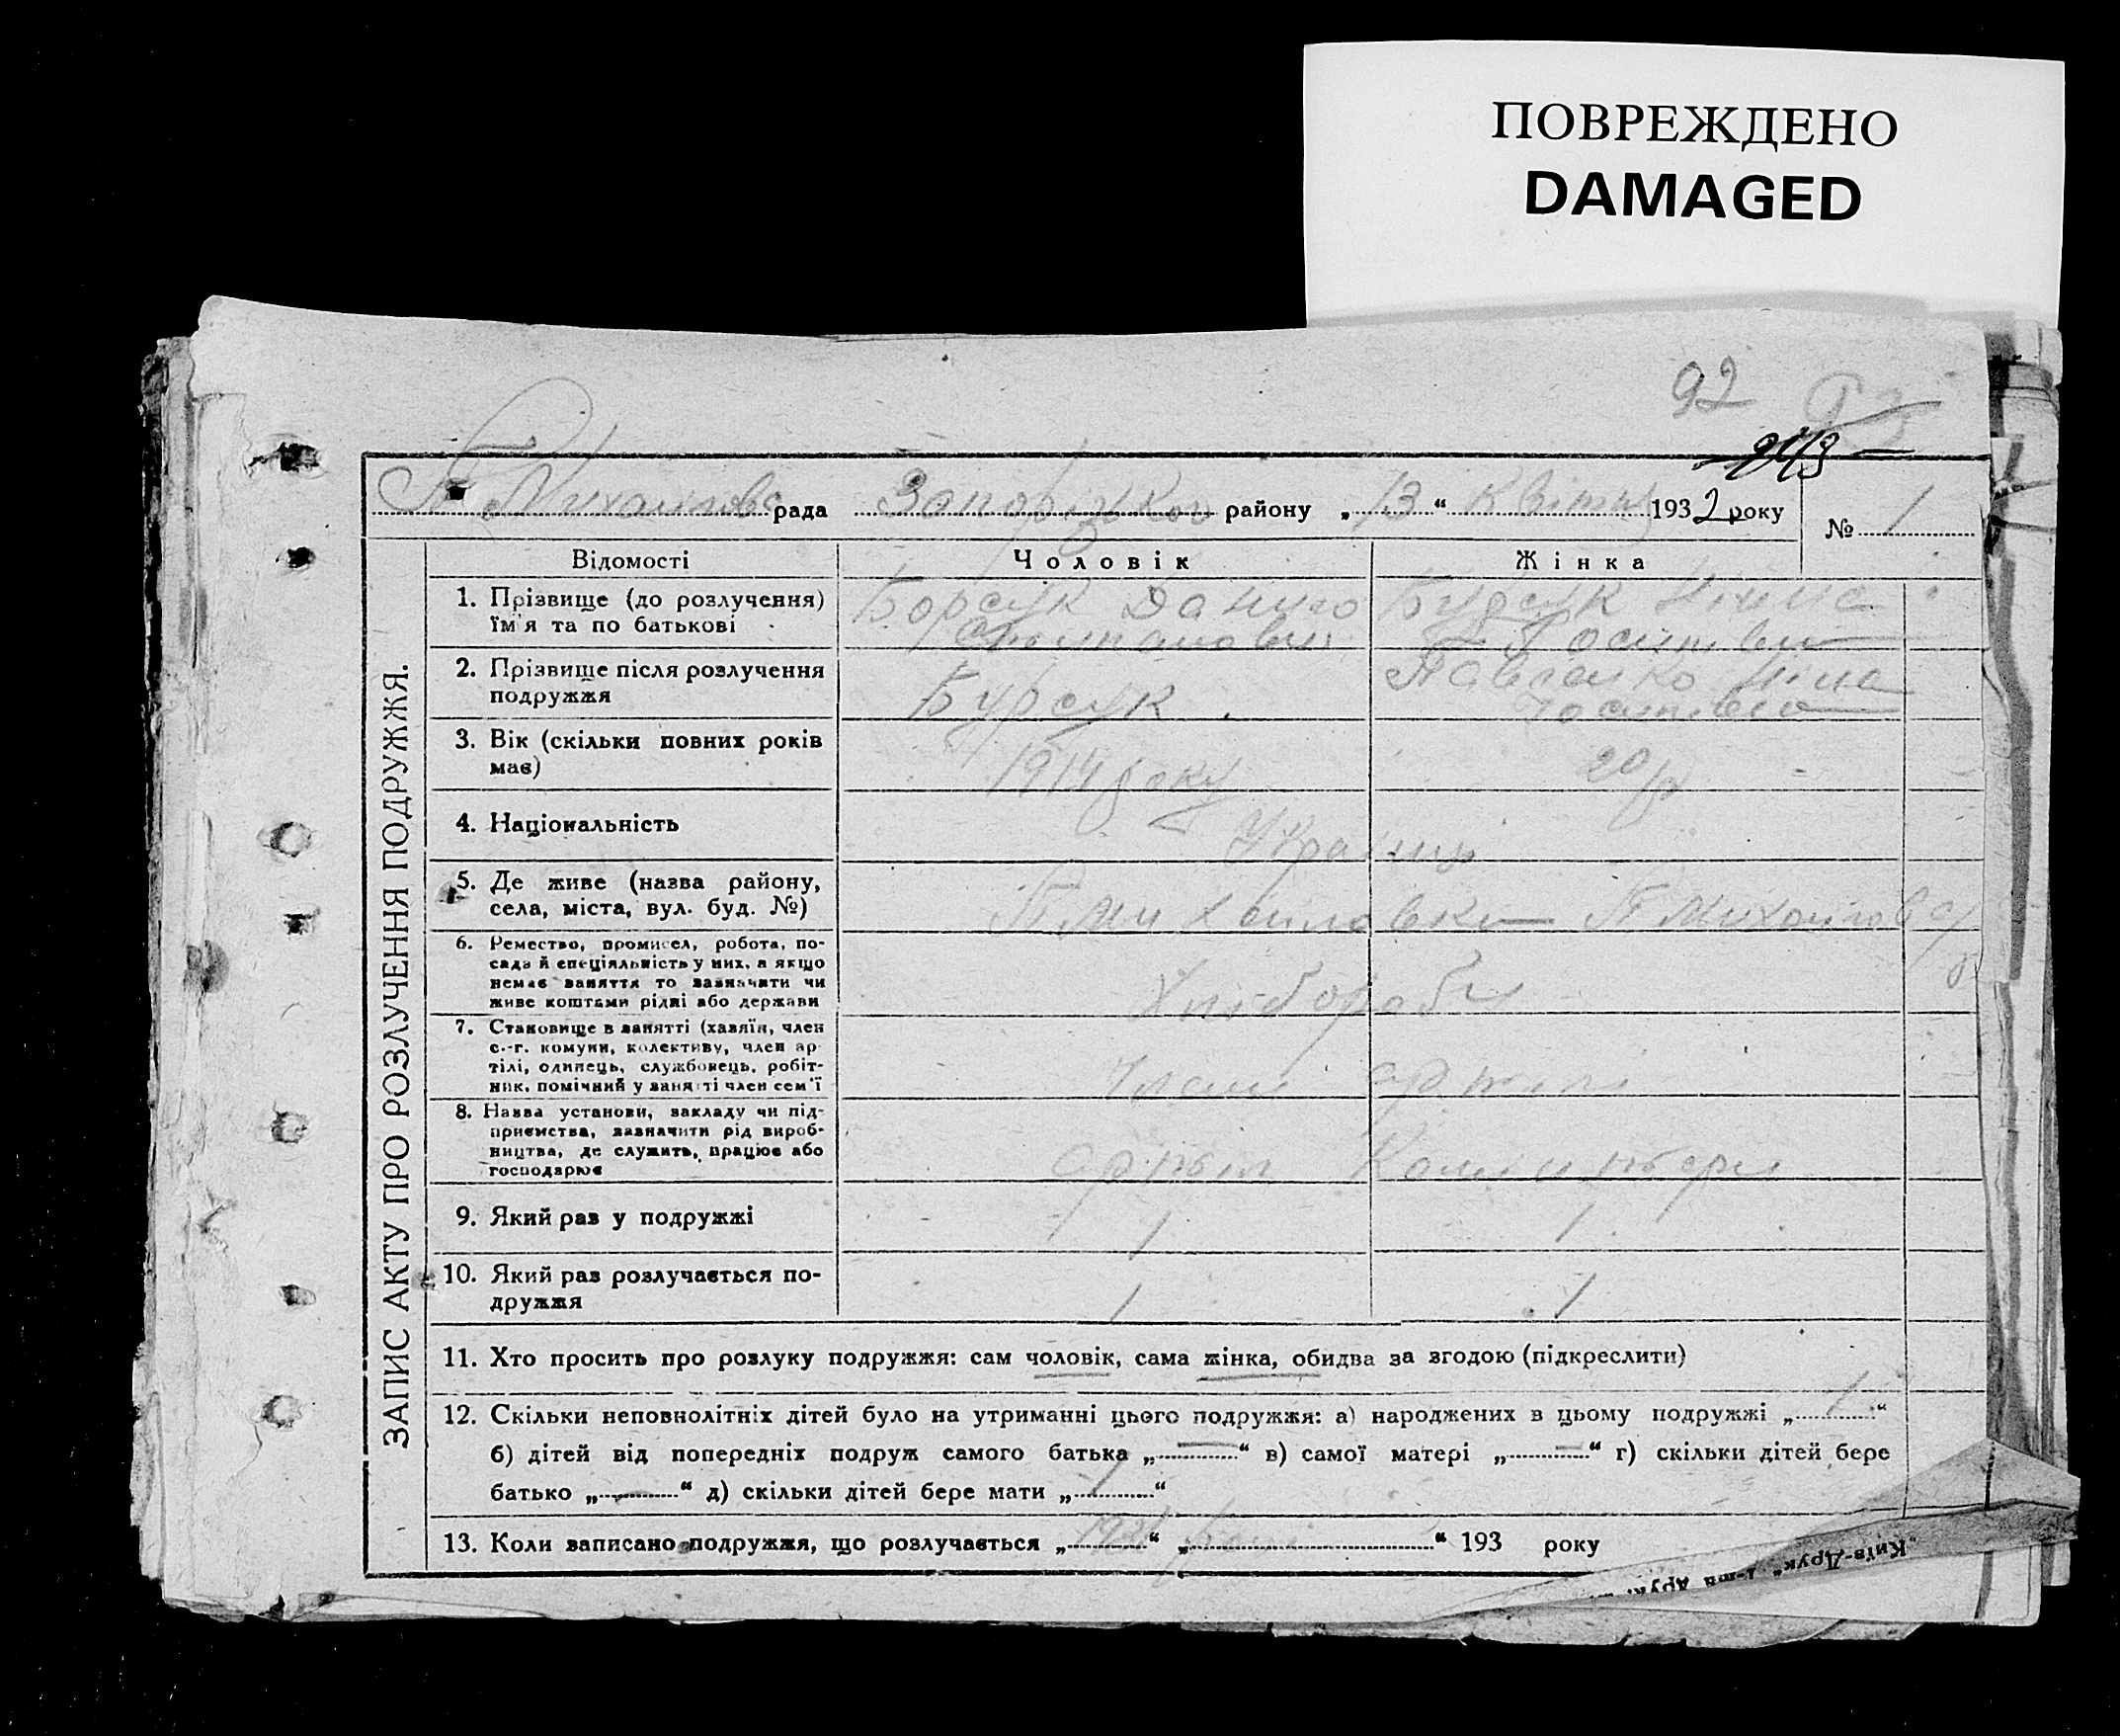 ПОВРЕЖДЕНО
DAMAGED
92
П Михайловс рада Запоріжког району „13“ Квітня 1932 року № 1
ЗАПИС АКТУ ПРО РОЗЛУЧЕННЯ ПОДРУЖЖЯ.
Відомості Чоловік Жінка
1. Прізвище (до розлучення) Борсук Данило Бурсук Ніна
їм'я та по батькові Степанович
2. Прізвище після розлучення Павленко Ніна
подружжя Бурсук
3. Вік (скільки повних років 1914 року 20 р
має)
4. Національність Українці
5. Де живе (назва району, П Михайловки П Михайловка
села, міста, вул. буд. №)
6. Ремество, промисел, робота, по-
сада й спеціяльність у них, а якщо
немає заняття то зазначити чи Хлібороби
живе коштами рідні або держави
7. Становище в занятті (хазяїн, член
с.-г. комуни, колективу, член ар-
тілі, одинець, службовець, робіт- Член артілі
ник, помічний у занятті член сем'ї
8. Назва установи, закладу чи під-
приємства, зазначити рід вироб-
ництва, де служить, працює або артіл Комінтерн
господарює
9. Який раз у подружжі 1 1
10. Який раз розлучається по-
дружжя 1 1
11. Хто просить про розлуку подружжя: сам чоловік, сама жінка, обидва за згодою (підкреслити)
12. Скільки неповнолітніх дітей було на утриманні цього подружжя: а) народжених в цьому подружжі „1“
б) дітей від попередніх подруж самого батька „—“ в) самої матері „—“ г) скільки дітей бере
батько „—“ д) скільки дітей бере мати „1“
13. Коли записано подружжя, що розлучається „ “ „ “ 193 року
„Київ-Друк“